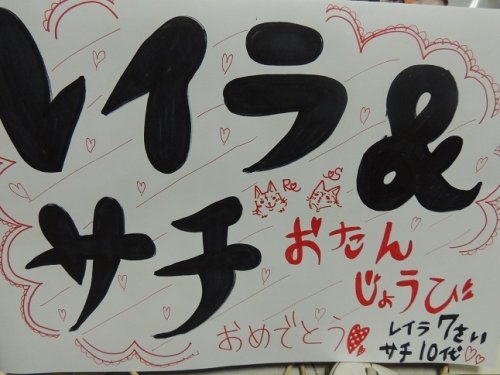 レイラ &
サチ
Re
es
おたん
じょうび
おめでとう
レイラ 7さい
サチ 10代